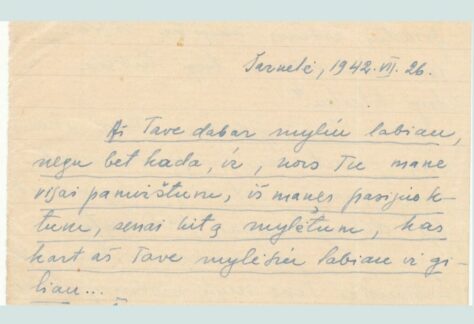 Žarnelė, 1942.VII.26.
Aš Tave dabar myliu labiau,
negu bet kada, ir, nors Tu mane
visai pamirštum, iš manęs pasijuok-
tum, senai kitą mylėtum, kas
kart aš Tave mylėsiu labiau ir gi-
liau...